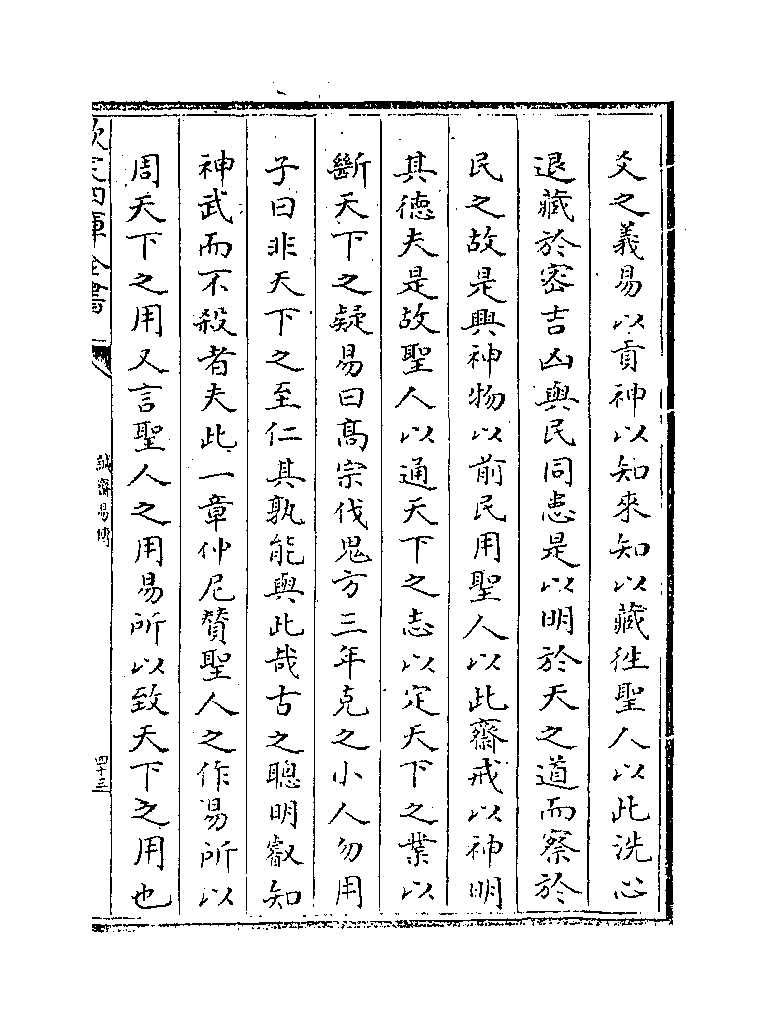 爻之義易以貢神以知來知以藏徃聖人以此洗心
退藏於密吉凶與民同患是以明於天之道而察於
民之故是興神物以前民用聖人以此齋戒以神明
其德夫是故聖人以通天下之志以定天下之業以
斷天下之疑易曰髙宗伐鬼方三年克之小人勿用
子曰非天下之至仁其孰能與此哉古之聰明叡知
神武而不殺者夫此一章仲尼賛聖人之作易所以
周天下之用又言聖人之用易所以致天下之用也
欽定四庫全書
誠齋易傳
四十三